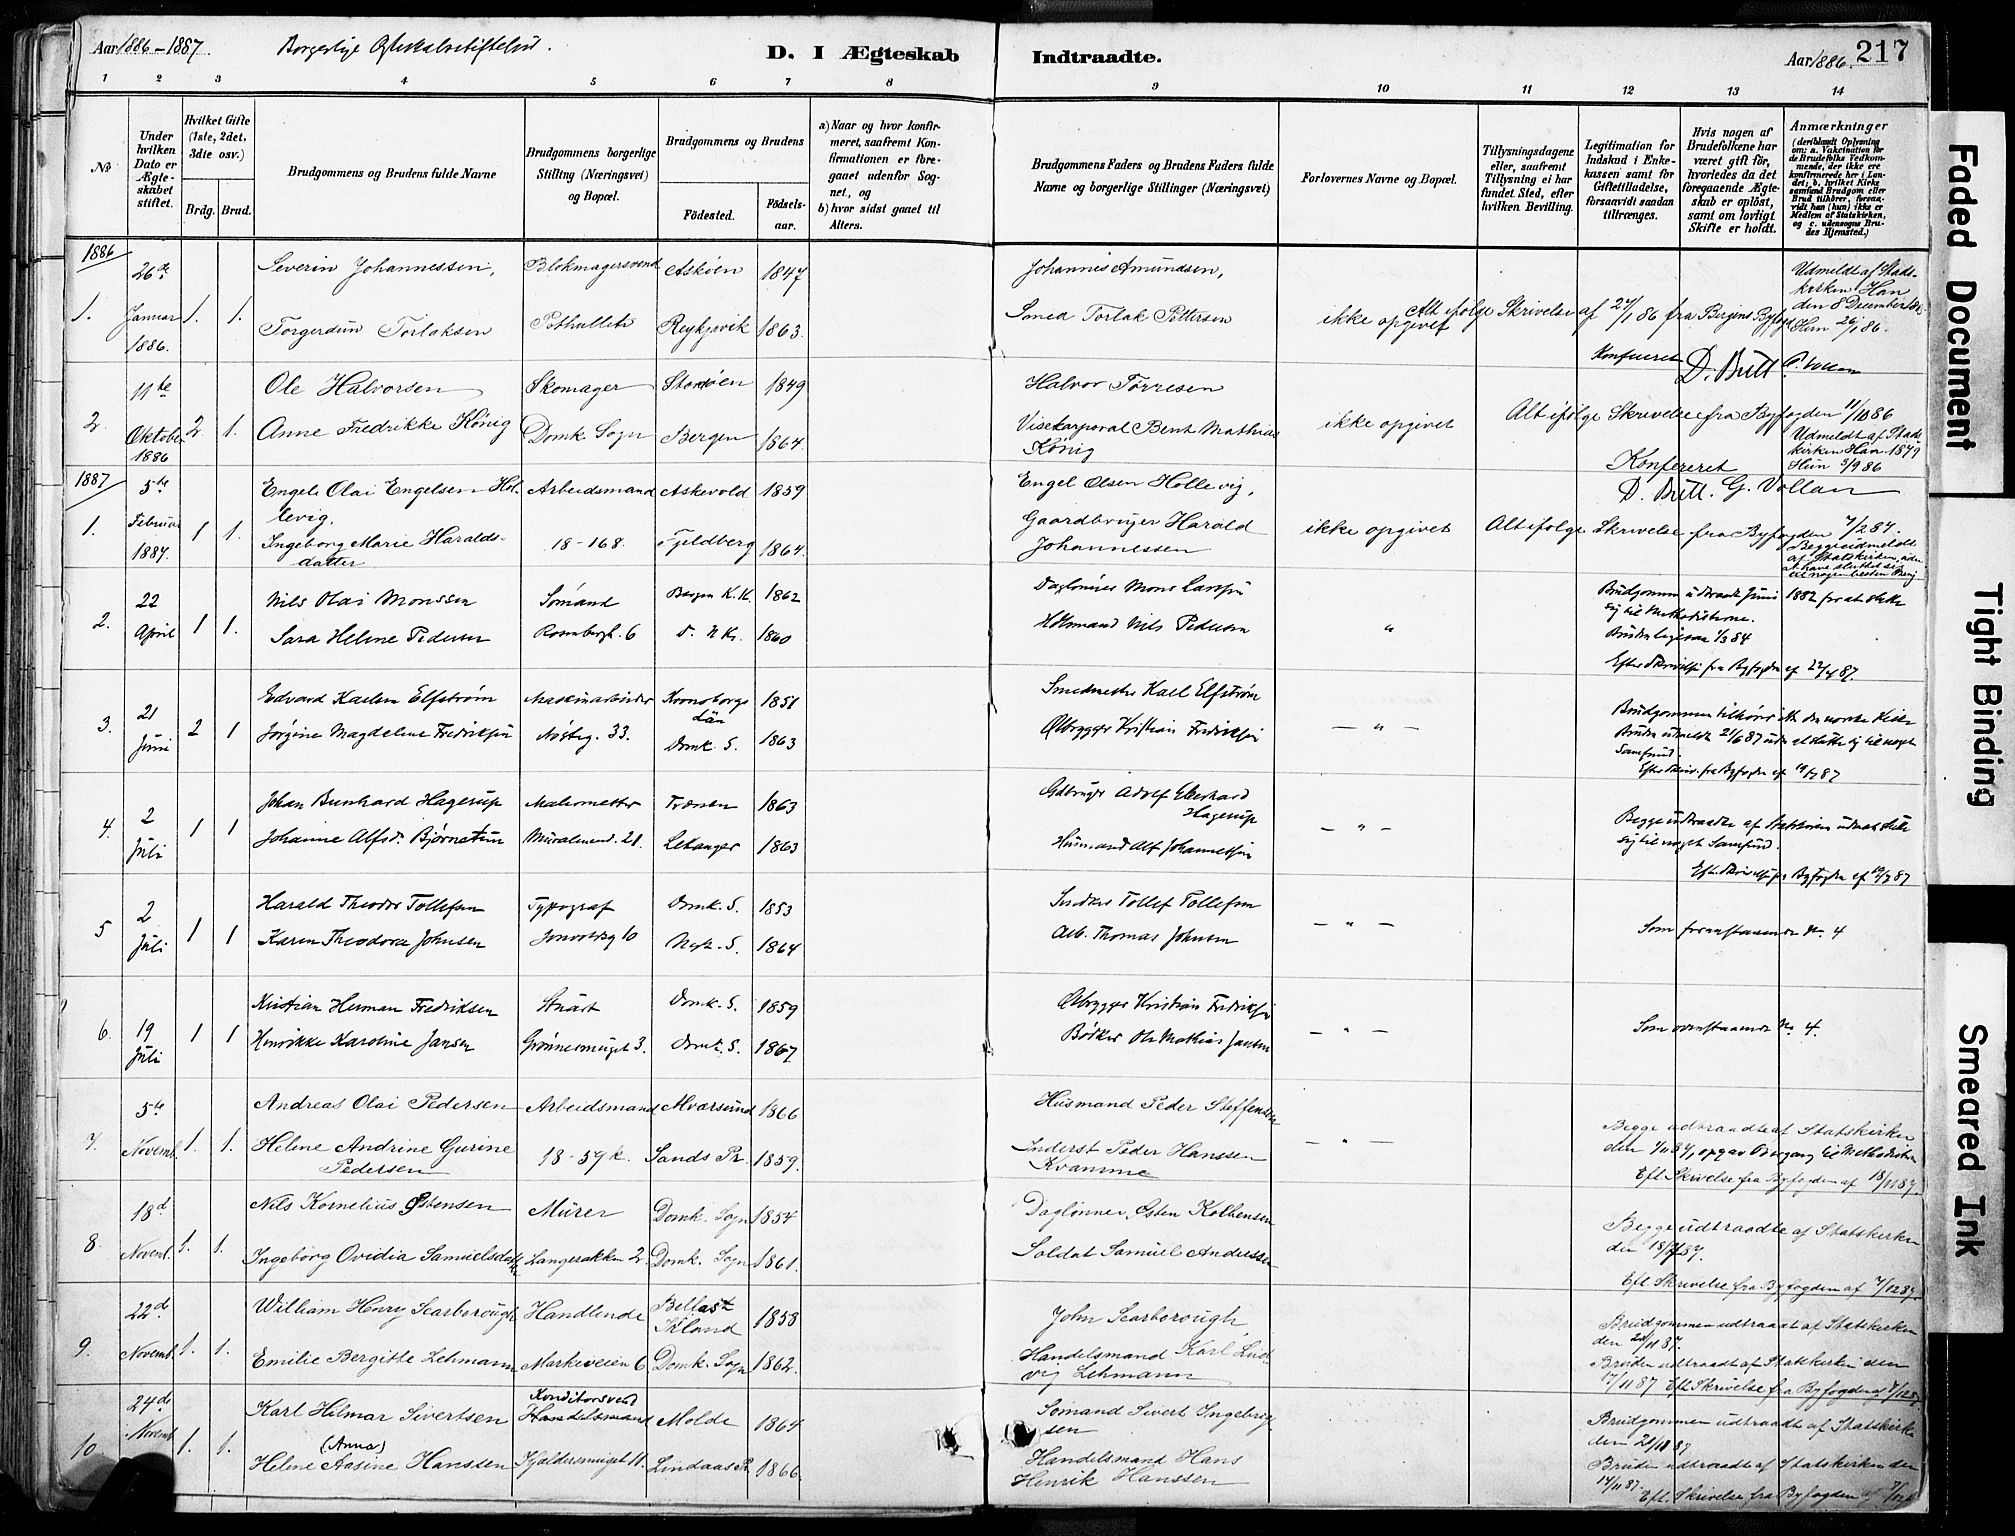 Aar 1886-1887.
D. I Ægteskab Indtraadte.
Aar 1886. 217
1 2 3 4 5 6 7 8 9 10 11 12 13 14
№
Under hvilken Dato er Ægteskabet stiftet.
Hvilket Gifte (1ste, 2det, 3die osv.)
Brdg. Brud.
Brudgommens og Brudens fulde Navne
Brudgommens borgerlige Stilling (Næringsvei) og Bopæl.
Brudgommens og Brudens
Födested.
Födselsaar.
a) Naar og hvor konfirmeret, saafremt Konfirmationen er foregaaet udenfor Sognet, og
b) hvor sidst gaaet til Alters.
Brudgommens Faders og Brudens Faders fulde Navne og borgerlige Stillinger (Næringsvei)
Forlovernes Navne og Bopæl.
Tillysningsdagene eller, saafremt Tillysning ei har fundet Sted, efter hvilken Bevilling.
Legitimation for Indskud i Enkekassen samt for Giftetilladelse, forsaavidt saadan tiltrænges.
Hvis nogen af Brudefolkene har været gift för, hvorledes da det foregaaende Ægteskab er oplöst, samt om lovligt Skifte er holdt.
Anmærkninger (deriblandt Oplysning om: a. Vakcination for de Brudefolks Vedkommende, der ikke ere konfirmerede her i Landet; b. hvilket Kirkesamfund Brudgom eller Brud tilhörer, forsaavidt han (hun) ikke er Medlem af Statskirken, og c. udensogns Brudes Hjemsted.)
1886
1. 26de Januar 1886. 1. 1.
Severin Johannessen, Blokmagersvend Askøen 1847 Johannes Amundsen,
Torgerdun Torlaksen Reykjavik 1863. Smed Torlak Pettersen
ikke opgivet
Alt ifølge Skrivelse af 27/1 86 fra Bergens Byfoged
Udmeldt af Stadskirken Han den 8 December
Hun 26/1 86.
Konfereret D. Bull G. Vollan
2. 11te Oktober 1886 2. 1.
Ole Halvorsen Skomager Stordøen 1849 Halvor Torresen
Anne Fredrikke König Domk. Sogn Bergen 1864. Visekorporal Bent Mathias König
ikke opgivet
Alt ifølge Skrivelse fra Byfogden 11/10 86
Udmeldt af Stadskirken Han 1879 Hun 3/9 86
Konfereret D. Bull. G. Vollan
1887
1. 5te Februar 1887. 1 1.
Engel Olai Engelsen Hollevig. Arbeidsmand Askevold 1859 Engel Olsen Hollevig,
Ingeborg Marie Haraldsdatter 18-168. Fjeldberg 1864. Gaardbruger Harald Johannessen
ikke opgivet
Alt ifølge Skrivelse fra Byfogden 7/2 87.
Begge udmeldt af Statskirken uden at have sluttet sig til nogen bestemt Menj
2. 22 April 1 1.
Nils Olai Monssen Sømand Bergen K.K. 1862 Daglønner Mons Larssen
Sara Helene Pedersen Rosenbergt. 6 D. N. Kr. 1860 Nils Pedersen
"
Brudgommen udtraadt Juni 1882 for at slutte sig til Methodisterne.
Bruden ligesaa 1/3 84
Efter Skrivelse fra Byfogden af 22/4 87.
3. 21 Juni 2 1
Edvard Karlen Elfström Maskinarbeider Kronoborgs Län 1851 Smedmester Karl Elfström
Jørgine Magdalene Fredriksen Nøsteg. 33. Domk. S. 1863 Ølbrygger Kristian Fredriksen
— " —
Brudgommen tilhører ikke den norske Kirke
Bruden udmeldt 21/6 87 uden at slutte sig til noget Samfund.
Efter Skriv. fra Byfogden af 19/7 87
4. 2 Juli 1 1
Johan Bernhard Hagerup Malermester 1863 Adolf Eberhard Hagerup
Johanne Alfsd. Bjørnetun Muralmend. 21. Lekanger 1863 Husmand Alf Johannessen
— " —
Begge udtraadte af Statskirken uden at slutte sig til noget Samfund.
Efter Skrivelse fra Byfogden af 19/7 87
5 2 Juli 1 1
Harald Theodor Tollefsen Typograf Domk. S. 1853 Tollef Tollefsen
Karen Theodora Johnsen 10 Nyk. S. 1864 Arb. Thomas Johnsen
— " —
Som foranstaaende No. 4
6. 19 Juli 1 1
Kristian Herman Fredriksen Stuart Domk. S. 1859 Ølbrygger Kristian Fredriksen
Henrikke Karoline Jansen Grønnesmuget 3. Domk. S. 1867. Bødker Ole Mathias Jansen
— " —
Som ovenstaaende No 4.
7. 5te Novemb. 1. 1.
Andreas Olai Pedersen Arbeidsmand 1866 Husmand Peder Steffensen
Helene Andrine Gurine Pedersen 18-59k. Sands Pr. 1859. Inderst Peder Hanssen Kvamme
— " —
Begge udtraadte af Statskirken
den 1/11 87, opgav Overgang til Methodisterne
Eft. Skrivelse fra Byfogden af 18/11 87.
8. 18d Novemb. 1. 1.
Nils Kornelius Østensen Murer Domk. Sogn 1854 Daglønner Østen Kolbensen
Ingeborg Ovidia Samuelsdatter Langerækken 2. Domk. Sogn 1861. Soldat Samuel Anderssen
Begge udtraadte af Statskirken
Eft. Skrivelse fra Byfogden af 7/12 87.
9. 22d Novemb. 1. 1.
William Henry Scarborough Handlende Bellast Irland 1858 John Scarborough
Emilie Bergitte Lehmann Markeveien 6 Domk. Sogn 1862. Handelsmand Karl Ludvig Lehmann
Brudgommen udtraadt af Statskirken
Bruden udtraadt af Statskirken den 17/11 87 Eft. Skrivelse fra Byfogden af 7/12 87.
10. 24d Novemb. 1. 1.
Karl Hilmar Sivertsen Konditorsvend Handelsmand Molde 1864 Sømand Sivert Ingebrigtsen
(Anna)
Helene Aasine Hanssen Kjeldersmuget 11. Lindaas Pr. 1866. Handelsmand Hans Henrik Hanssen
Brudgommen udtraadt af Statskirken
Bruden udtraadt af Statskirken den 17/11 87.
Eft. Skrivelse fra Byfogden af
Faded Document
Tight Binding
Smeared Ink